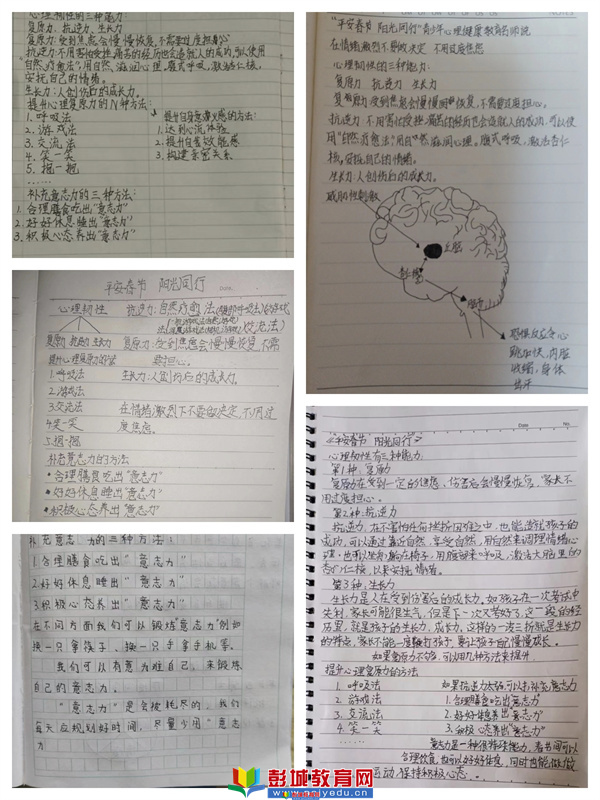 心理韧性的三种能力:
复原力、抗逆力、生长力
复原力:受到焦虑会慢慢恢复,不需要过度担心
抗逆力:不用害怕受挫痛苦的经历也会造就人的成功,可以使用
"自然疗愈法",用自然、滋润心理。腹式呼吸,激活杏仁核,
安抚自己的情绪。
生长力:人创伤后的成长力。
提升心理复原力的N种方法:
1.呼吸法
2.游戏法
3.交流法
4.笑一笑
5.抱一抱
……
提升自身意义感的方法:
1.达到心流体验
2.提升自我效能感
3.构建亲密关系
补充意志力的三种方法:
1.合理膳食吃出"意志力"
2.好好休息睡出"意志力"
3.积极心态养出"意志力"
"平安春节 阳光同行"青少年心理健康教育
在情绪激烈不要做决定 不用过度焦虑
心理韧性的三种能力:
复原力 抗逆力 生长力
复原力:受到焦虑会慢慢恢复,不需要过度担心。
抗逆力 不用害怕受挫 痛苦的经历也会造就人的成功。可以使
用"自然疗愈法"用自然滋润心理。腹式呼吸,激活杏仁
核,安抚自己的情绪。
生长力:人创伤后的成长力。
威胁性刺激
丘脑
杏仁核
脑干
跳加快,内脏
收缩,身体
出汗
平安春节 阳光同行
心理韧性
抗逆力:自然疗愈法
交流法)
复原力 抗逆力 生长力
复原力:受到焦虑会慢慢恢复,不需
要担心。
提升心理复原力的方法
1.呼吸法
生长力:人创伤后的成长力。
2.游戏法
3.交流法
在情绪激烈下不要做决定,不用过
4.笑一笑
度焦虑。
5.抱一抱
补充意志力的方法
·合理膳食吃出"意志力"
·好好休息睡出"意志力"
·积极心态养出"意志力"
补充意志力的三种方法:
1.合理膳食吃出"意志力"
2.好好休息睡出"意志力"
3.积极心态养出"意志力"
在不同方面我们可以锻炼意志力"例如
换一只拿筷子、换一只手拿手机等。
我们可以有意为难自己,来锻炼
自己的意志力。
"意志力"是会被耗尽的,我们
每天应规划好时间,尽量少用"意志
力
"平安春节 阳光同行"
心理韧性有三种能力:
第1种、复原力
复原力在受到一定的焦虑、伤害后会慢慢恢复,家长不
用过度担心。
第2种、抗逆力
抗逆力,在不害怕任何挫折困难之中,也能造就孩子的
成功,可以通过靠近自然,享受自然,用自然来调理情绪心
理,也可以坐和躺在椅子,用腹部来呼吸,激活大脑里的
杏仁核,以来安抚情绪。
第3种、生长力
生长力是人在受到伤害后的成长力。如孩子在一次考试中
失利,家长可能很生气,但是下一次又考好了,这一段的经
历里,就是孩子的生长力,成长力,这样的一波三折就是生长力
的特点,家长不能一度打孩子,要让孩子自己慢慢成长。
如果复原力不够,可以用几种方法来提升
提升心理复原力的方法
1.呼吸法
2.游戏法
3.交流法
4.笑一笑
如果抗逆力太弱,可以补充意志力
1.合理膳食吃出"意志力"
2.好好休息养出"意志力"
3.积极心态养出"意志力"
意志力是一种很特殊能力,看书间可以
合理饮食,也可以好好休息,同时也能做做
运动,保持积极心态。
彭城教育网